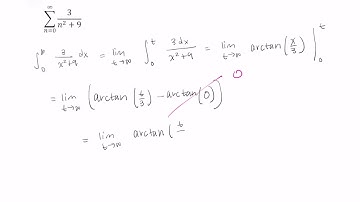 ∞
∑ 3/(n²+9)
n=0
∫₀^∞ 3/(x²+9) dx = lim t→∞ ∫₀^t 3dx/(x²+9) = lim t→∞ arctan(x/3) |₀^t
= lim t→∞ (arctan(t/3) - arctan(0)) 0
= lim t→∞ arctan(t/